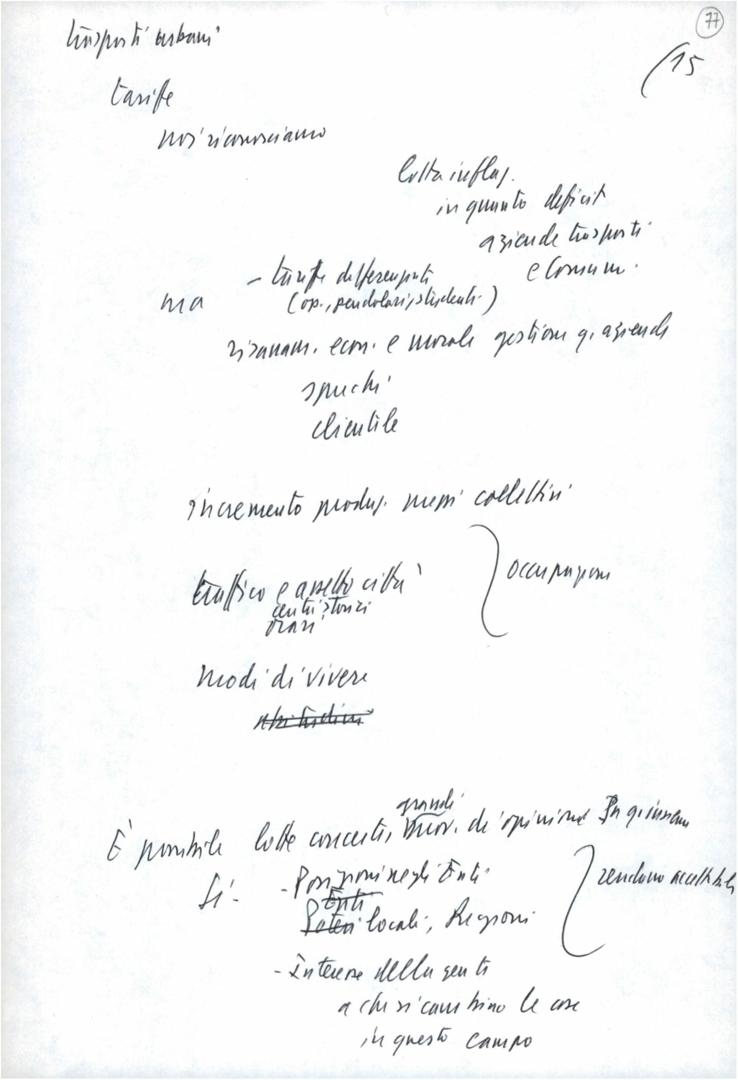 77
15
trasporti urbani
tariffe
noi riconosciamo
lotta inflaz.
in quanto deficit
aziende trasporti
e Comuni.
- tariffe differenziate
ma (op., pendolari, studenti.)
risanam. econ. e morale gestione aziende
sprechi
clientele
incremento produz. mezzi collettivi
traffico e assetto città
centri storici
orari
occupazione
modi di vivere
abitudini
grandi
È possibile lotte concrete, mov. di opinione
Sì - Posizioni negli Enti
Enti
Poteri locali, Regioni
rendono accettabili
- Interesse della gente
a che si cambino le cose
in questo campo